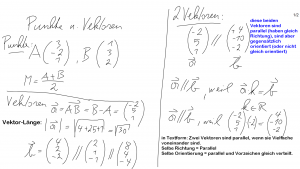 Punkte u. Vektoren
Punkte A(3/-2/-1), B(1/3/2)
M = A+B / 2
Vektoren
a = AB = B - A = (-2/5/1)
Vektor-Länge: |a| = √4+25+1 = √30
b = (4/2/-2) // (2/1/-1) // (8/4/-4)
2 Vektoren:
(-2/5/1) (+4/-10/-2)
a b
diese beiden
Vektoren sind
parallel (haben gleich
Richtung), sind aber
gegensätzlich
orientiert (oder nicht
gleich orientiert)
a // b, weil a·k = b
k ∈ R
a // b, weil (-2/5/1)(-2) = (4/-10/-2)
in Textform: Zwei Vektoren sind parallel, wenn sie Vielfache
voneinander sind.
Selbe Richtung = Parallel
Selbe Orientierung = parallel und Vorzeichen gleich verteilt.